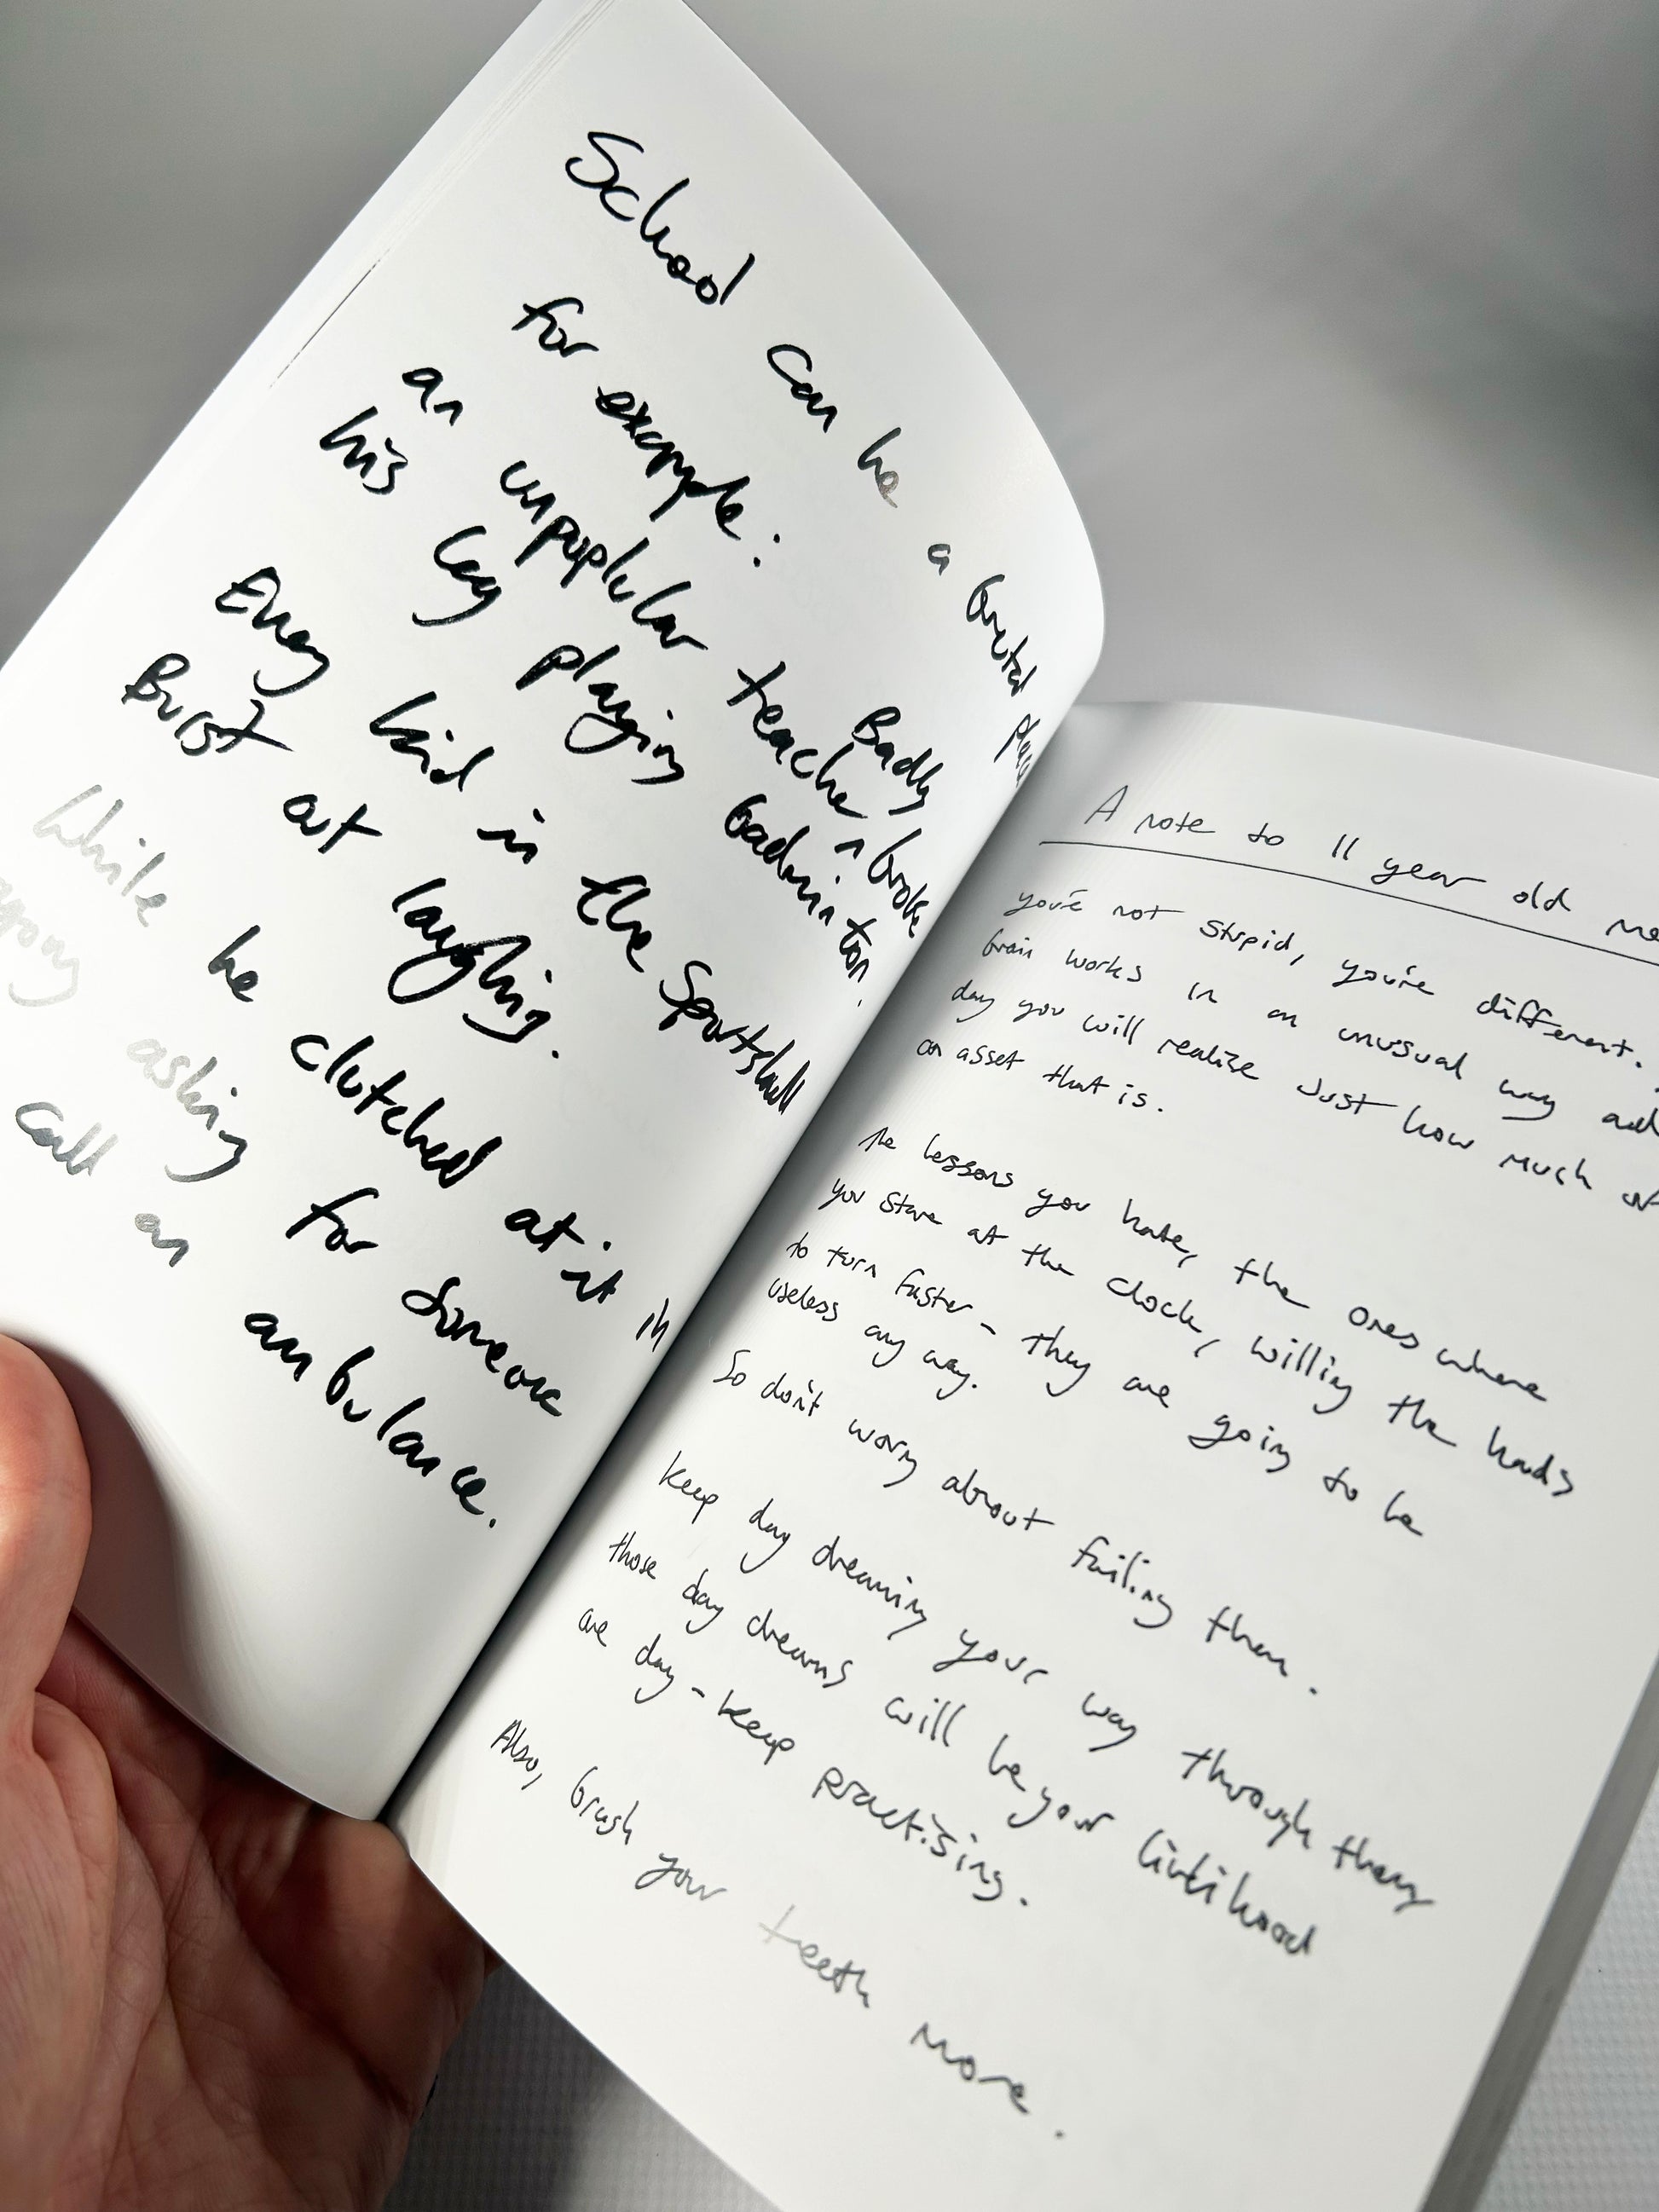 School can be a brutal place
for example:
Badly
an unpopular teacher ^ broke
his leg playing badminton.
Every kind in the Sportshall
Burst out laughing.
While he clutched at it in
agony asking for someone
call an ambulance.
A note to 11 year old me
you're not stupid, you're different.
brain works in an unusual way and
day you will realize Just how much of
an asset that is.
The lessons you hate, the ones where
you stare at the clock, willing the hands
to turn faster - they are going to be
useless any way.
So don't worry about failing them.
Keep day dreaming your way through them
those day dreams will be your livelihood
one day - keep practising.
Also, brush your teeth more.